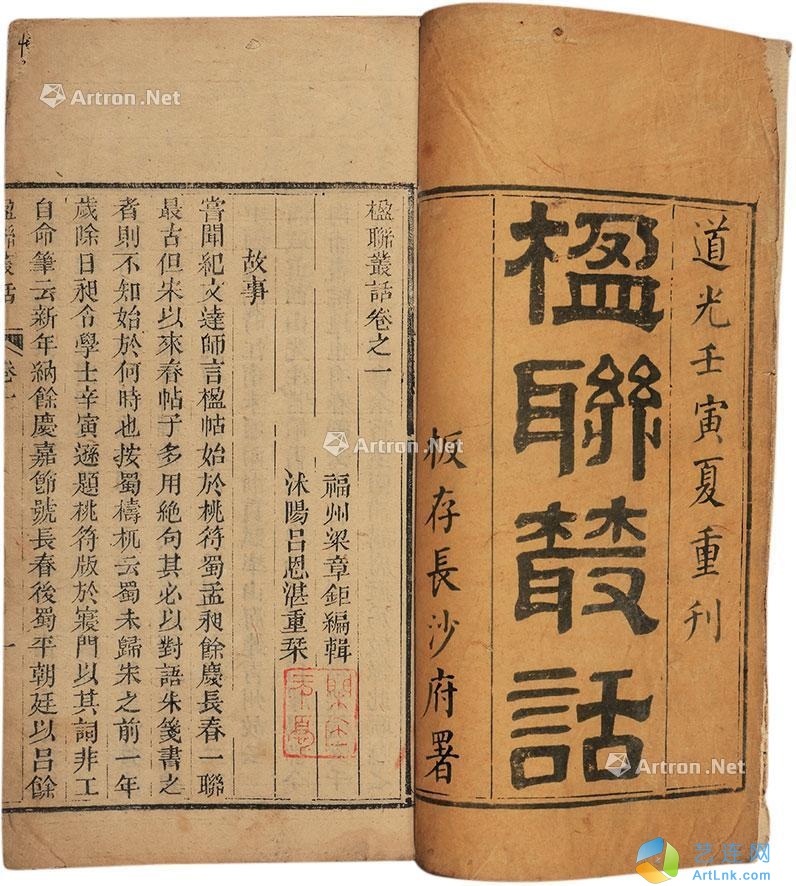 道光壬寅夏重刊
楹聯叢話
板存長沙府署
楹聯叢話卷之一
福州梁章鉅編輯
沭陽呂恩湛重栞
故事
嘗聞紀文達師言楹帖始於桃符蜀孟昶餘慶長春一聯
最古但宋以來春帖子多用絕句其必以對語朱箋書之
者則不知始於何時也按蜀檮杌云蜀未歸宋之前一年
歲除日昶令學士辛寅遜題桃符版於寢門以其詞非工
自命筆云新年納餘慶嘉節號長春後蜀平朝廷以呂餘
楹聯叢話
卷一
一
Artron.Net
Artron.Net
Artron.Net
Artron.Net
艺连网
ArtLnk.com